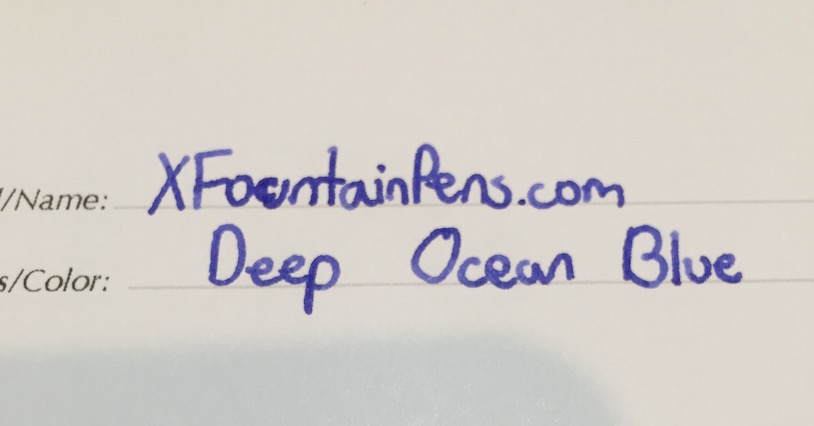 /Name: XFountainPens.com
s/Color: Deep Ocean Blue